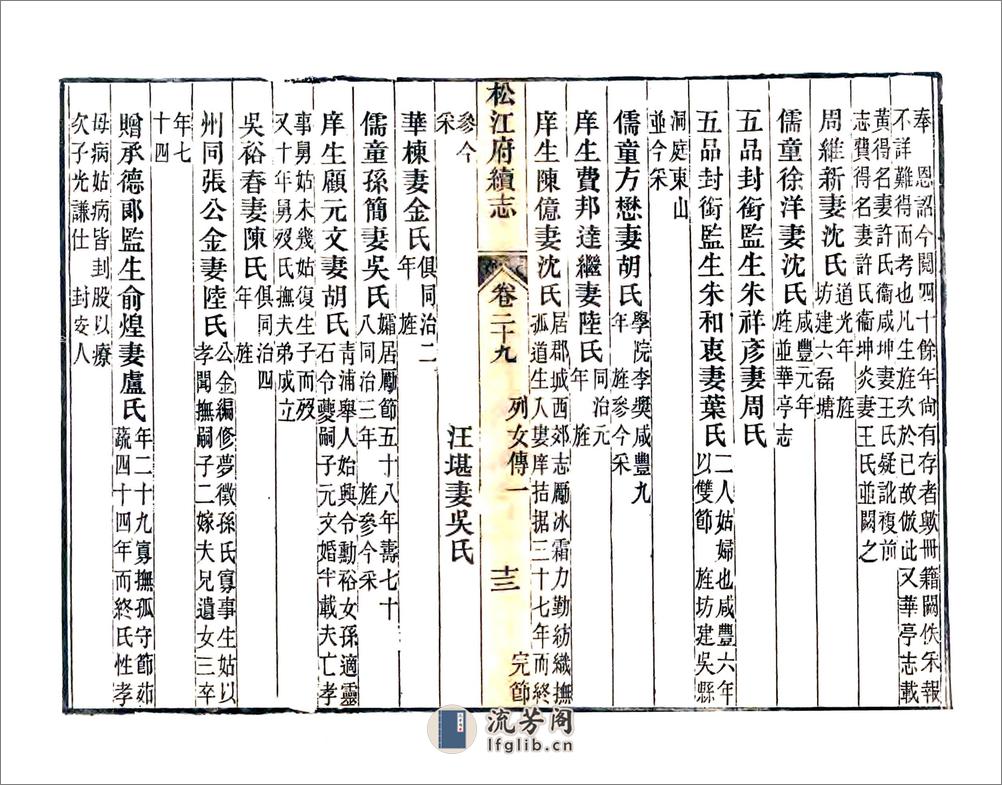 奉　恩詔今閱四十餘年尚有存者歟冊籍闕佚采報
不詳難得而考也凡生旌次於已故倣此又華亭志載
黃得名妻許氏衞咸坤妻王氏疑訛複前
志費得名妻許氏衞坤炎妻王氏並闕之
周維新妻沈氏
道光年　旌
坊建六磊塘
儒童徐洋妻沈氏
咸豐元年
旌並華亭志
五品封銜監生朱祥彥妻周氏
五品封銜監生朱和衷妻葉氏
二人姑婦也咸豐六年
以雙節　旌坊建吳縣
洞庭東山
並今采
儒童方懋妻胡氏
學院李奬咸豐九
年　旌參今采
庠生費邦達繼妻陸氏
同治元
年　旌
庠生陳億妻沈氏
居郡城西郊志勵冰霜力勤紡織撫
孤道生入婁庠拮据三十七年而終
松江府續志　卷二十九　列女傳一　完節　十三
參今
采
汪堪妻吳氏
華棟妻金氏
俱同治二
年　旌
儒童孫簡妻吳氏
孀居勵節五十八年壽七十
八同治三年　旌參今采
庠生顧元文妻胡氏
青浦舉人始興令勳裕女孫適靈
石令夔嗣子元文婚半載夫亡孝
事舅姑未幾姑復生子而歿
又十年舅歿氏撫夫弟成立
吳裕春妻陳氏
俱同治四
年　旌
州同張公金妻陸氏
公金編修夢徵孫氏寡事生姑以
孝聞撫嗣子二嫁夫兄遺女三卒
年七
十四
贈承德郎監生俞煌妻盧氏
年二十九寡撫孤守節茹
蔬四十四年而終氏性孝
母病姑病皆刲股以療
次子光謙仕　封安人
流芳阁
lfglib.cn